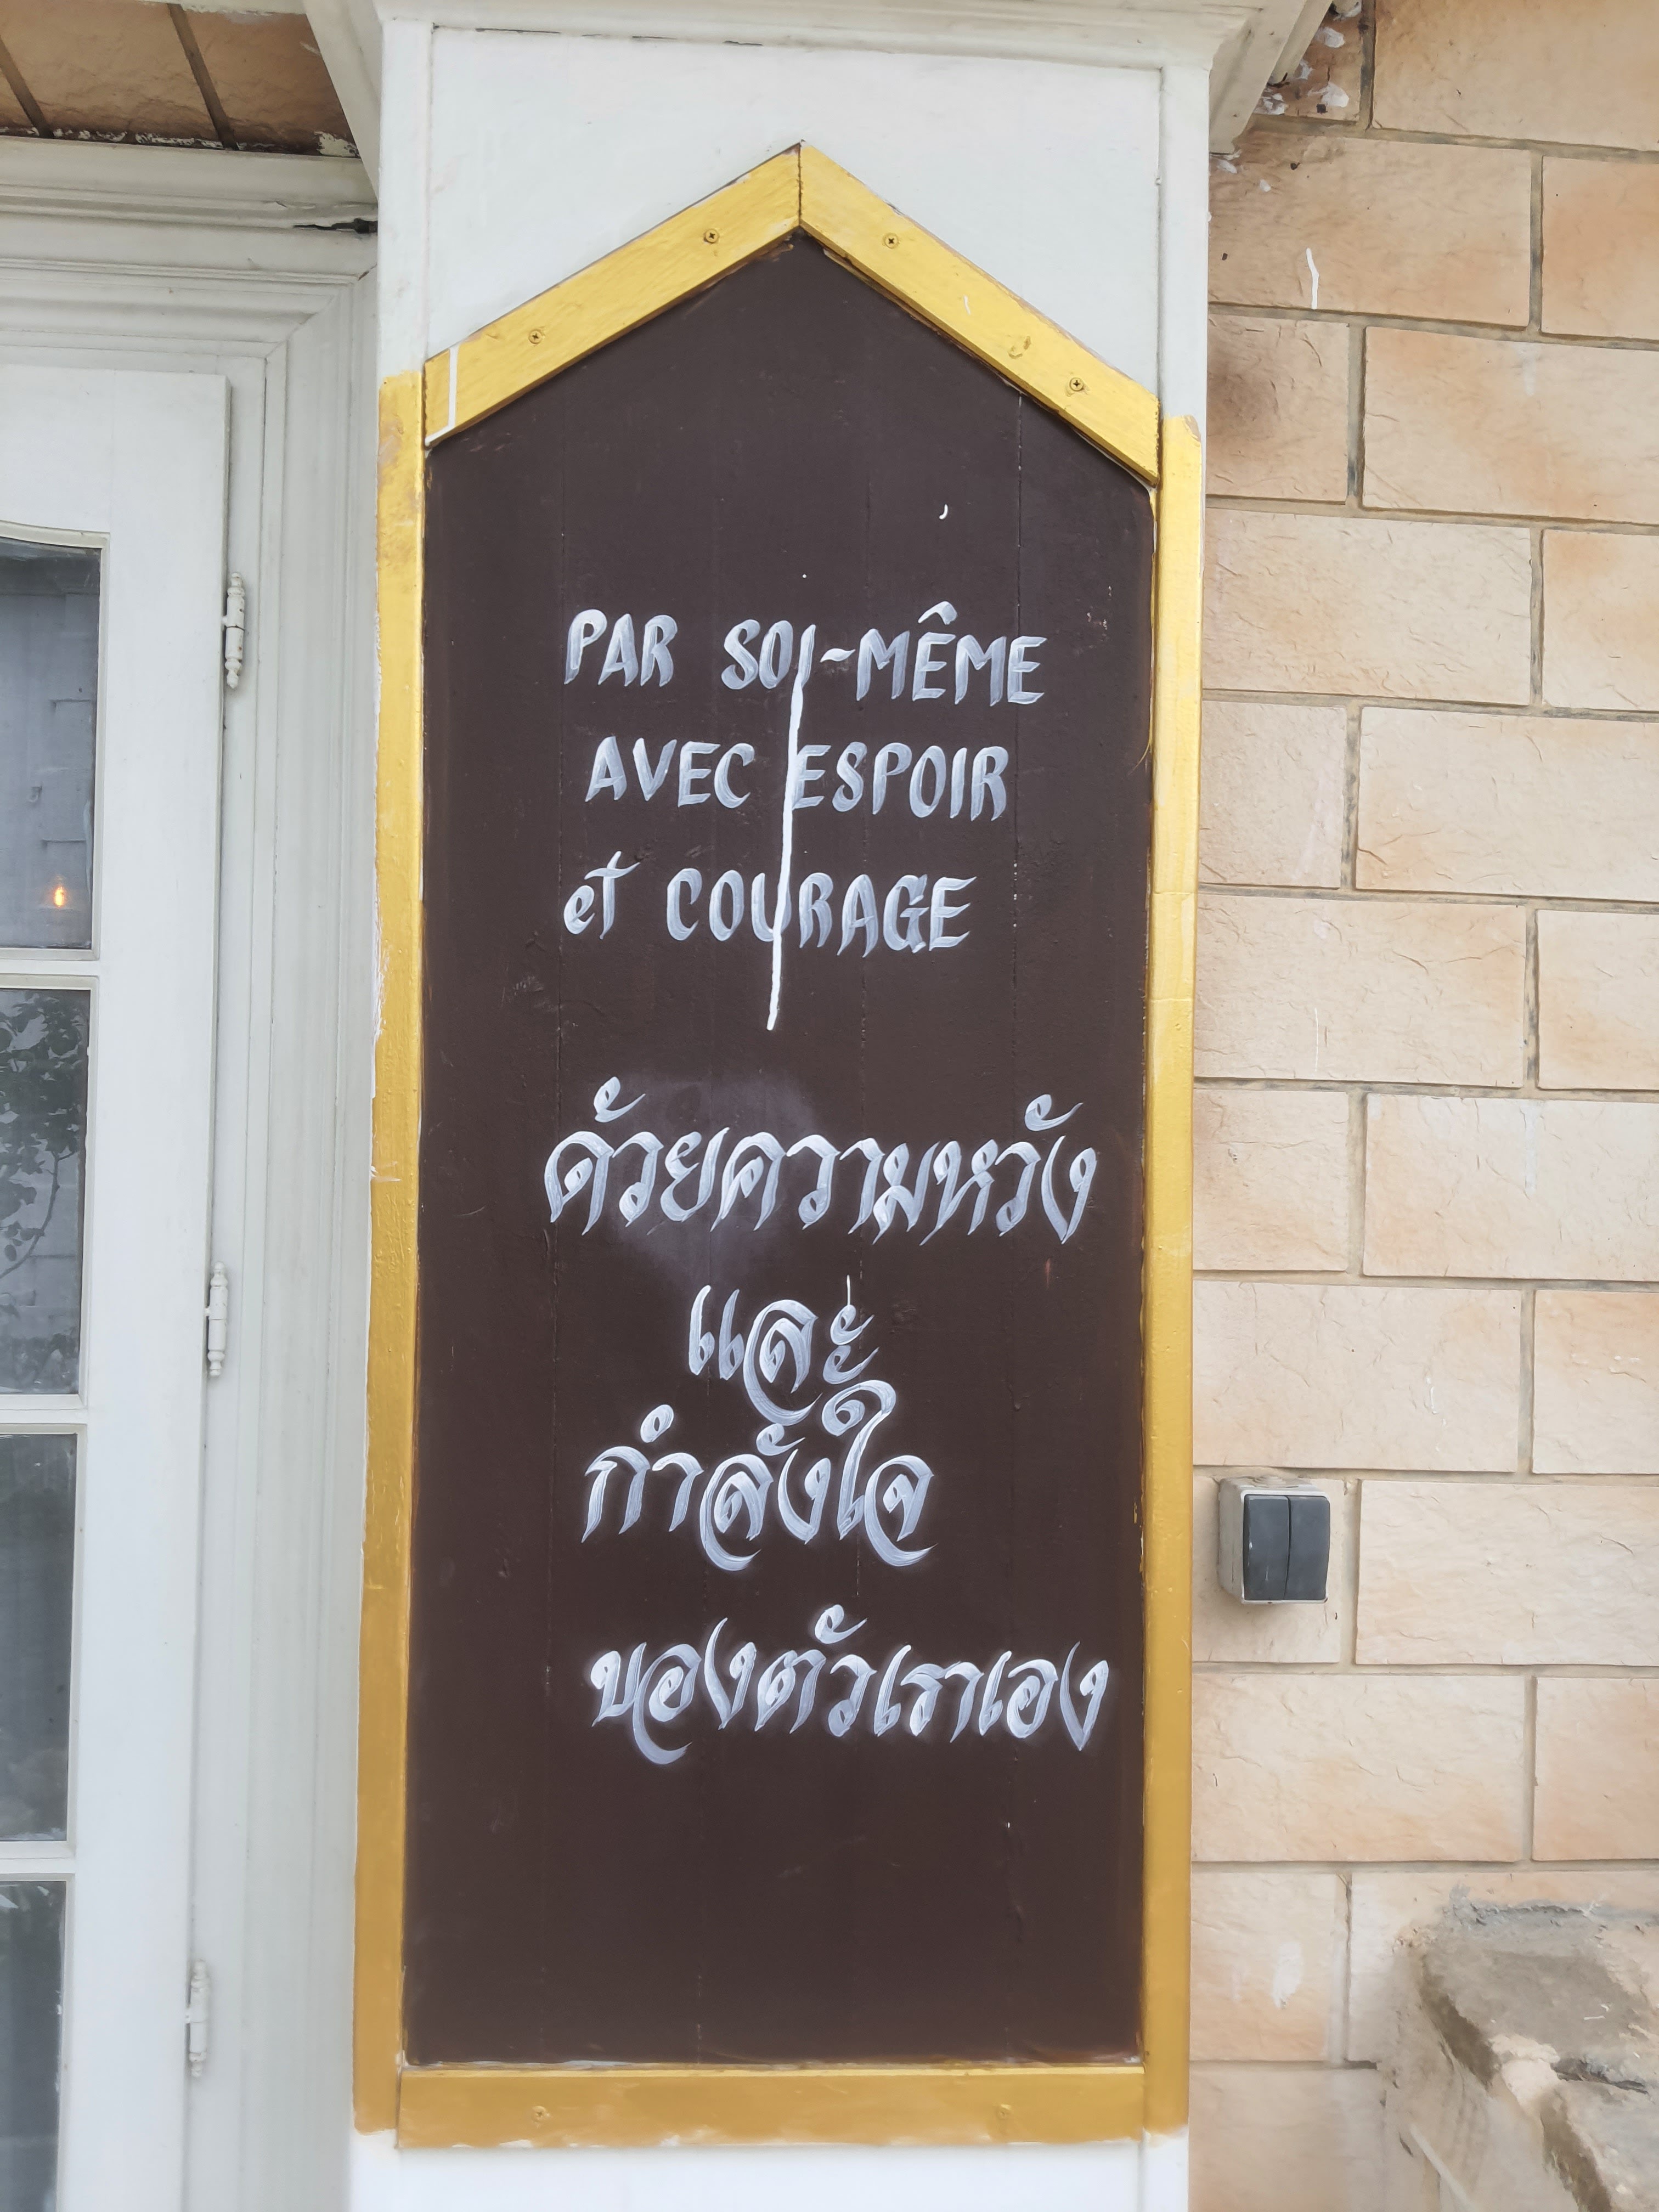 PAR SOI-MÊME
AVEC ESPOIR
et COURAGE
ด้วยความหวัง
และ
กำลังใจ
ของตัวเราเอง